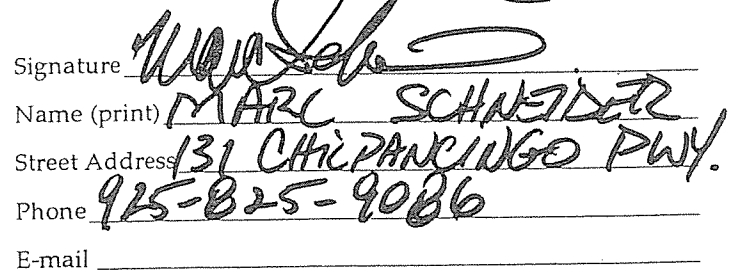 Signature
Name (print) MARC SCHNEIDER
Street Address 131 CHILPANCINGO PWY.
Phone 925-825-9086
E-mail